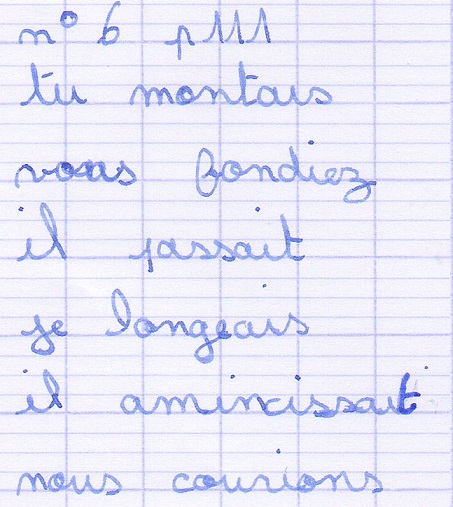 n° 6 p 111
tu montais
vous fondiez
il passait
je longeais
il amincissait
nous courions